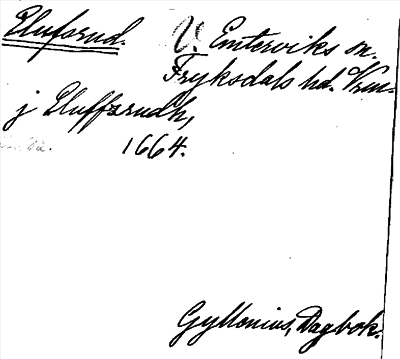 Elufsrud. V. Emterviks sn.
Fryksdals hd. Vrml.
j Eluffzrudh,
1664.
Gyllenius, Dagbok.